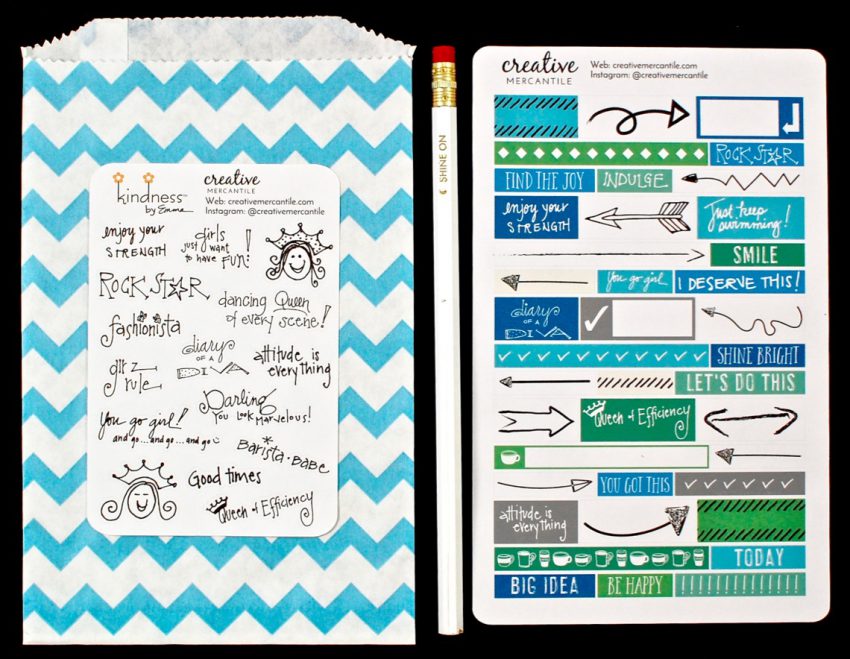 kindness™
by Emme
creative
MERCANTILE
Web: creativemercantile.com
Instagram: @creativemercantile
enjoy your
STRENGTH
girls
just want
to have FUN!
ROCK STAR
dancing Queen
of every scene!
fashionista
diary
OF A
DIVA
girlz
rule
attitude is
everything
Darling
You Look Marvelous!
You go girl!
and go...and go...and go
Barista·Babe
Good times
Queen of Efficiency
SHINE ON
creative
MERCANTILE
Web: creativemercantile.com
Instagram: @creativemercantile
ROCK STAR
FIND THE JOY
INDULGE
enjoy your
STRENGTH
Just keep
swimming!
SMILE
You go girl
I DESERVE THIS!
diary
OF A
DIVA
SHINE BRIGHT
LET'S DO THIS
Queen of Efficiency
YOU GOT THIS
attitude is
everything
TODAY
BIG IDEA
BE HAPPY
!!!!!!!!!!!!!!!!